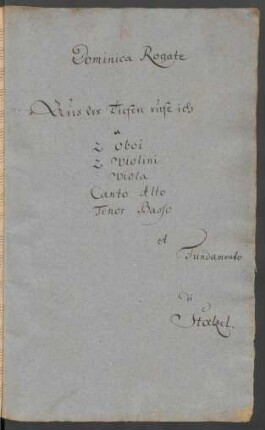 Dominica Rogate
Aus der Tiefen rufe ich
a
2 Oboi
2 Violini
Viola
Canto Alto
Tenor Basso
et
Fundamento
di
Stœlzel.